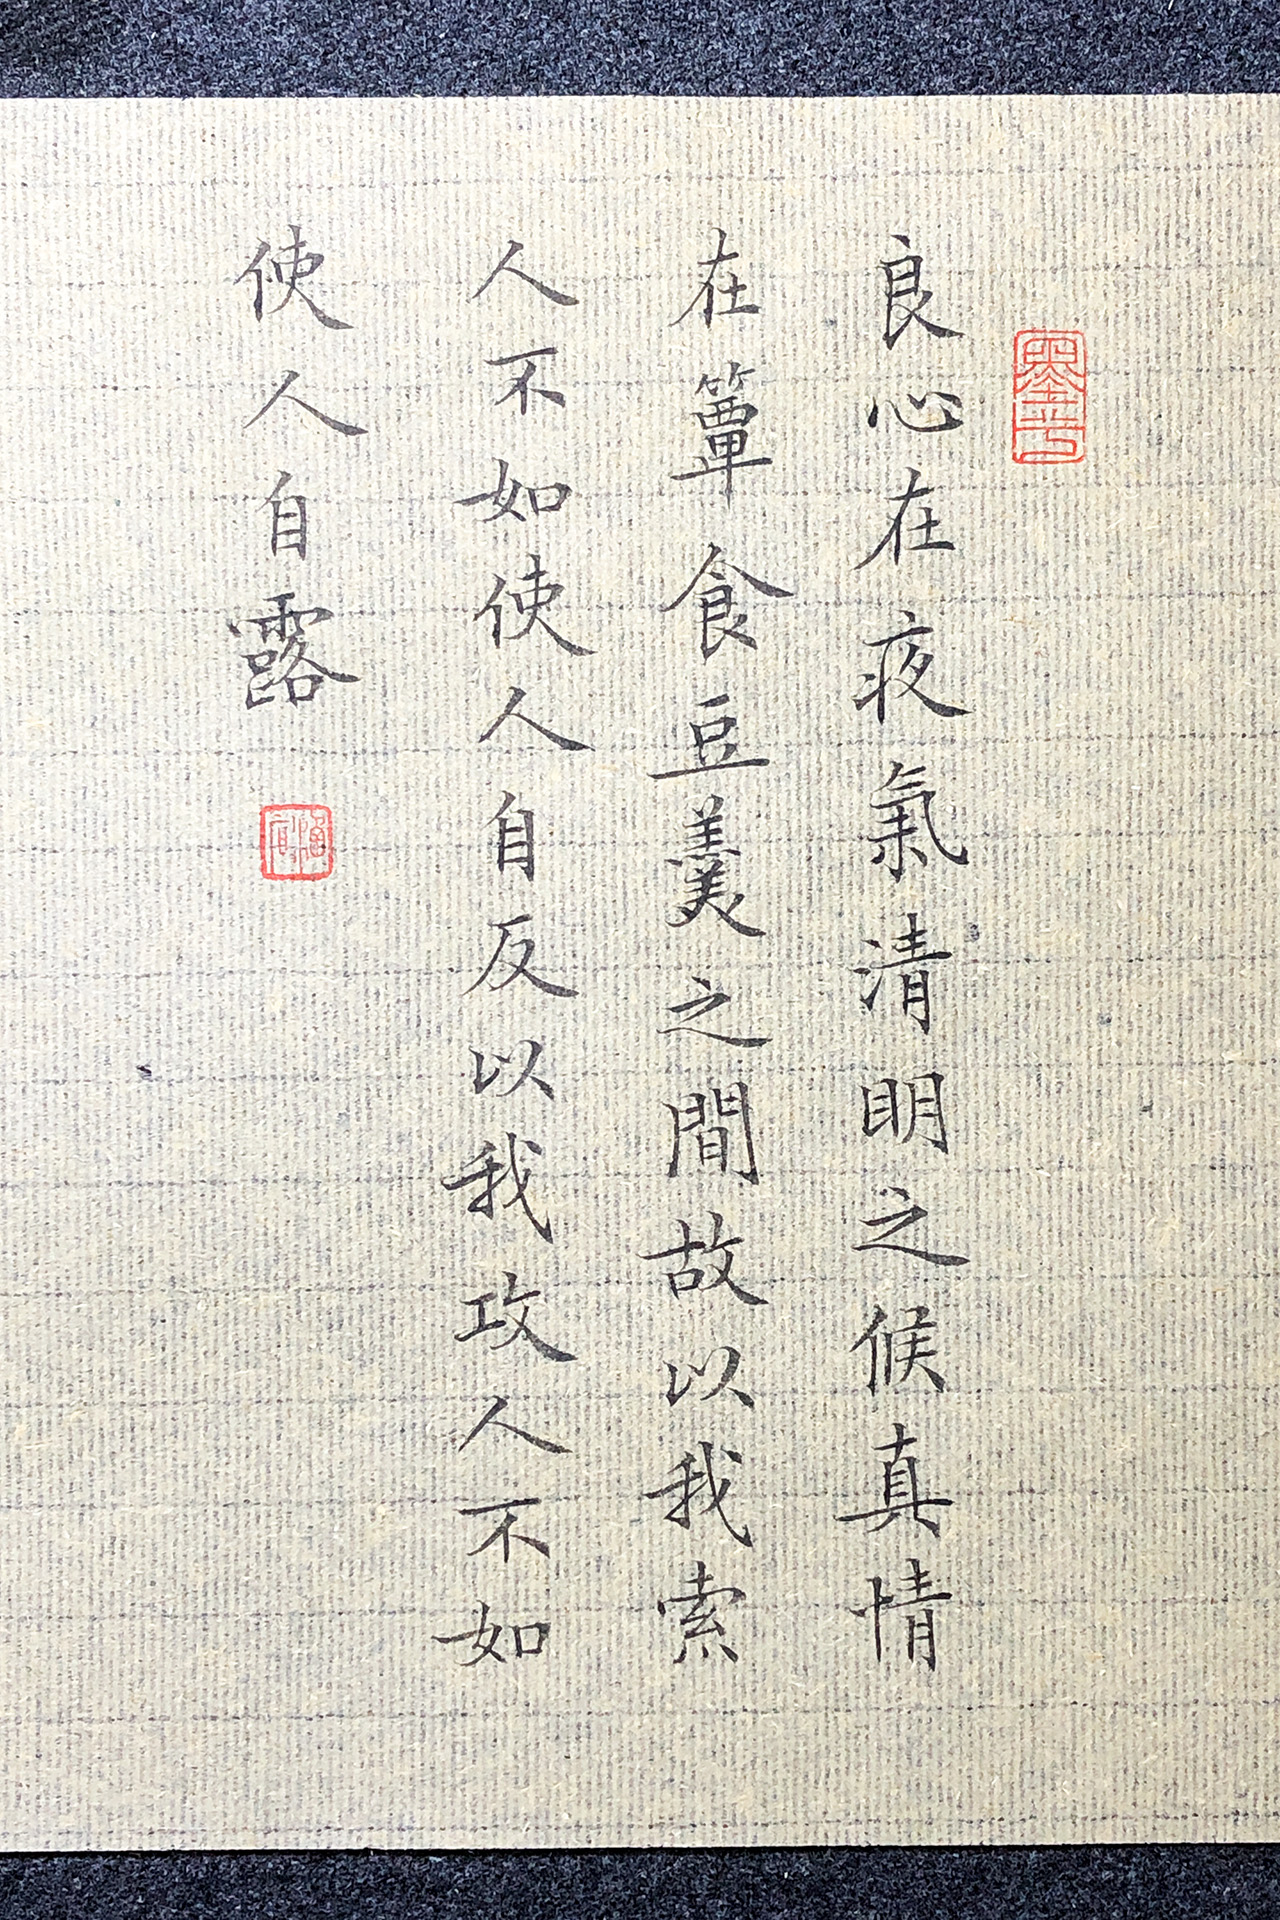 良心在夜氣清明之候真情
在簞食豆羹之間故以我索
人不如使人自反以我攻人不如
使人自露